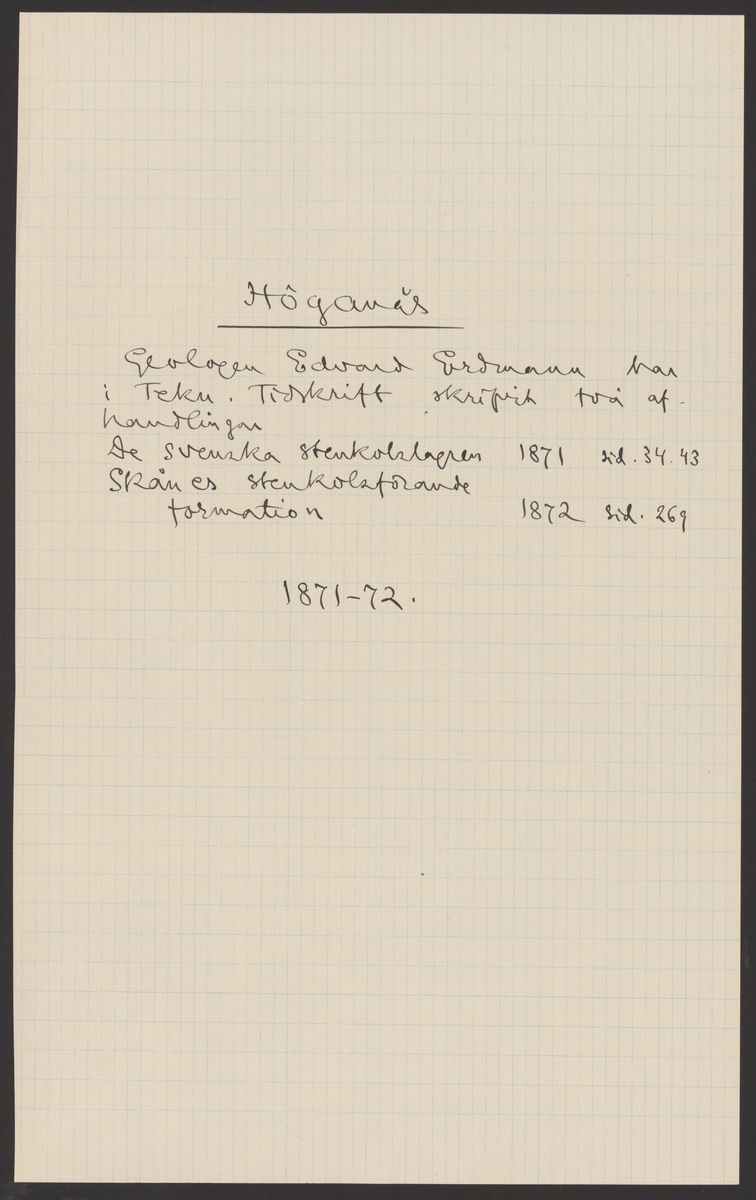 Höganäs
Geologen Edvard Erdmann har
i Tekn. Tidskrift skrifvit två af-
handlingar
De svenska stenkolslagren 1871 sid. 34. 43
Skånes stenkolsförande
formation 1872 sid. 269
1871-72.